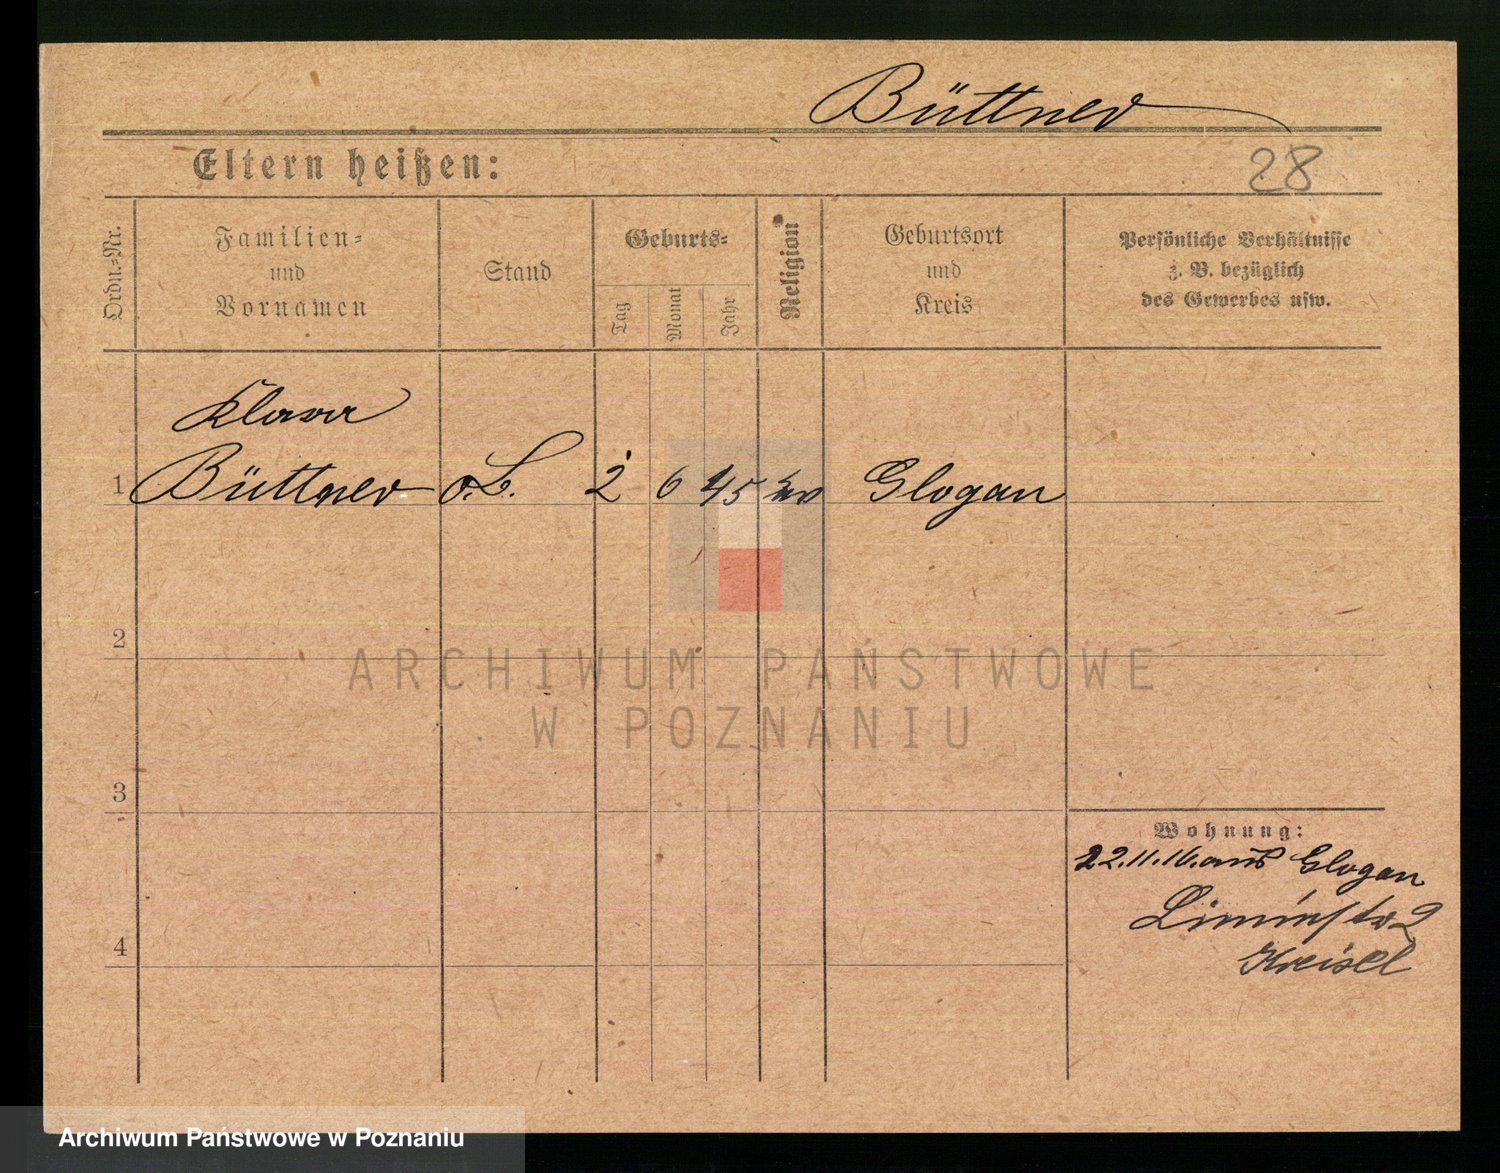 Büttner
Eltern heißen:
28
Ordn.-Nr.
Familien-
und
Vornamen
Stand
Geburts-
Tag
Monat
Jahr
Religion
Geburtsort
und
Kreis
Persönliche Verhältnisse
z. B. bezüglich
des Gewerbes usw.
Klara
1 Büttner o.B. 2 6 45 ev Glogau
2
3
4
Wohnung:
22.11.16. aus Glogau
2
Kreisel
ARCHIWUM PAŃSTWOWE
W POZNANIU
Archiwum Państwowe w Poznaniu